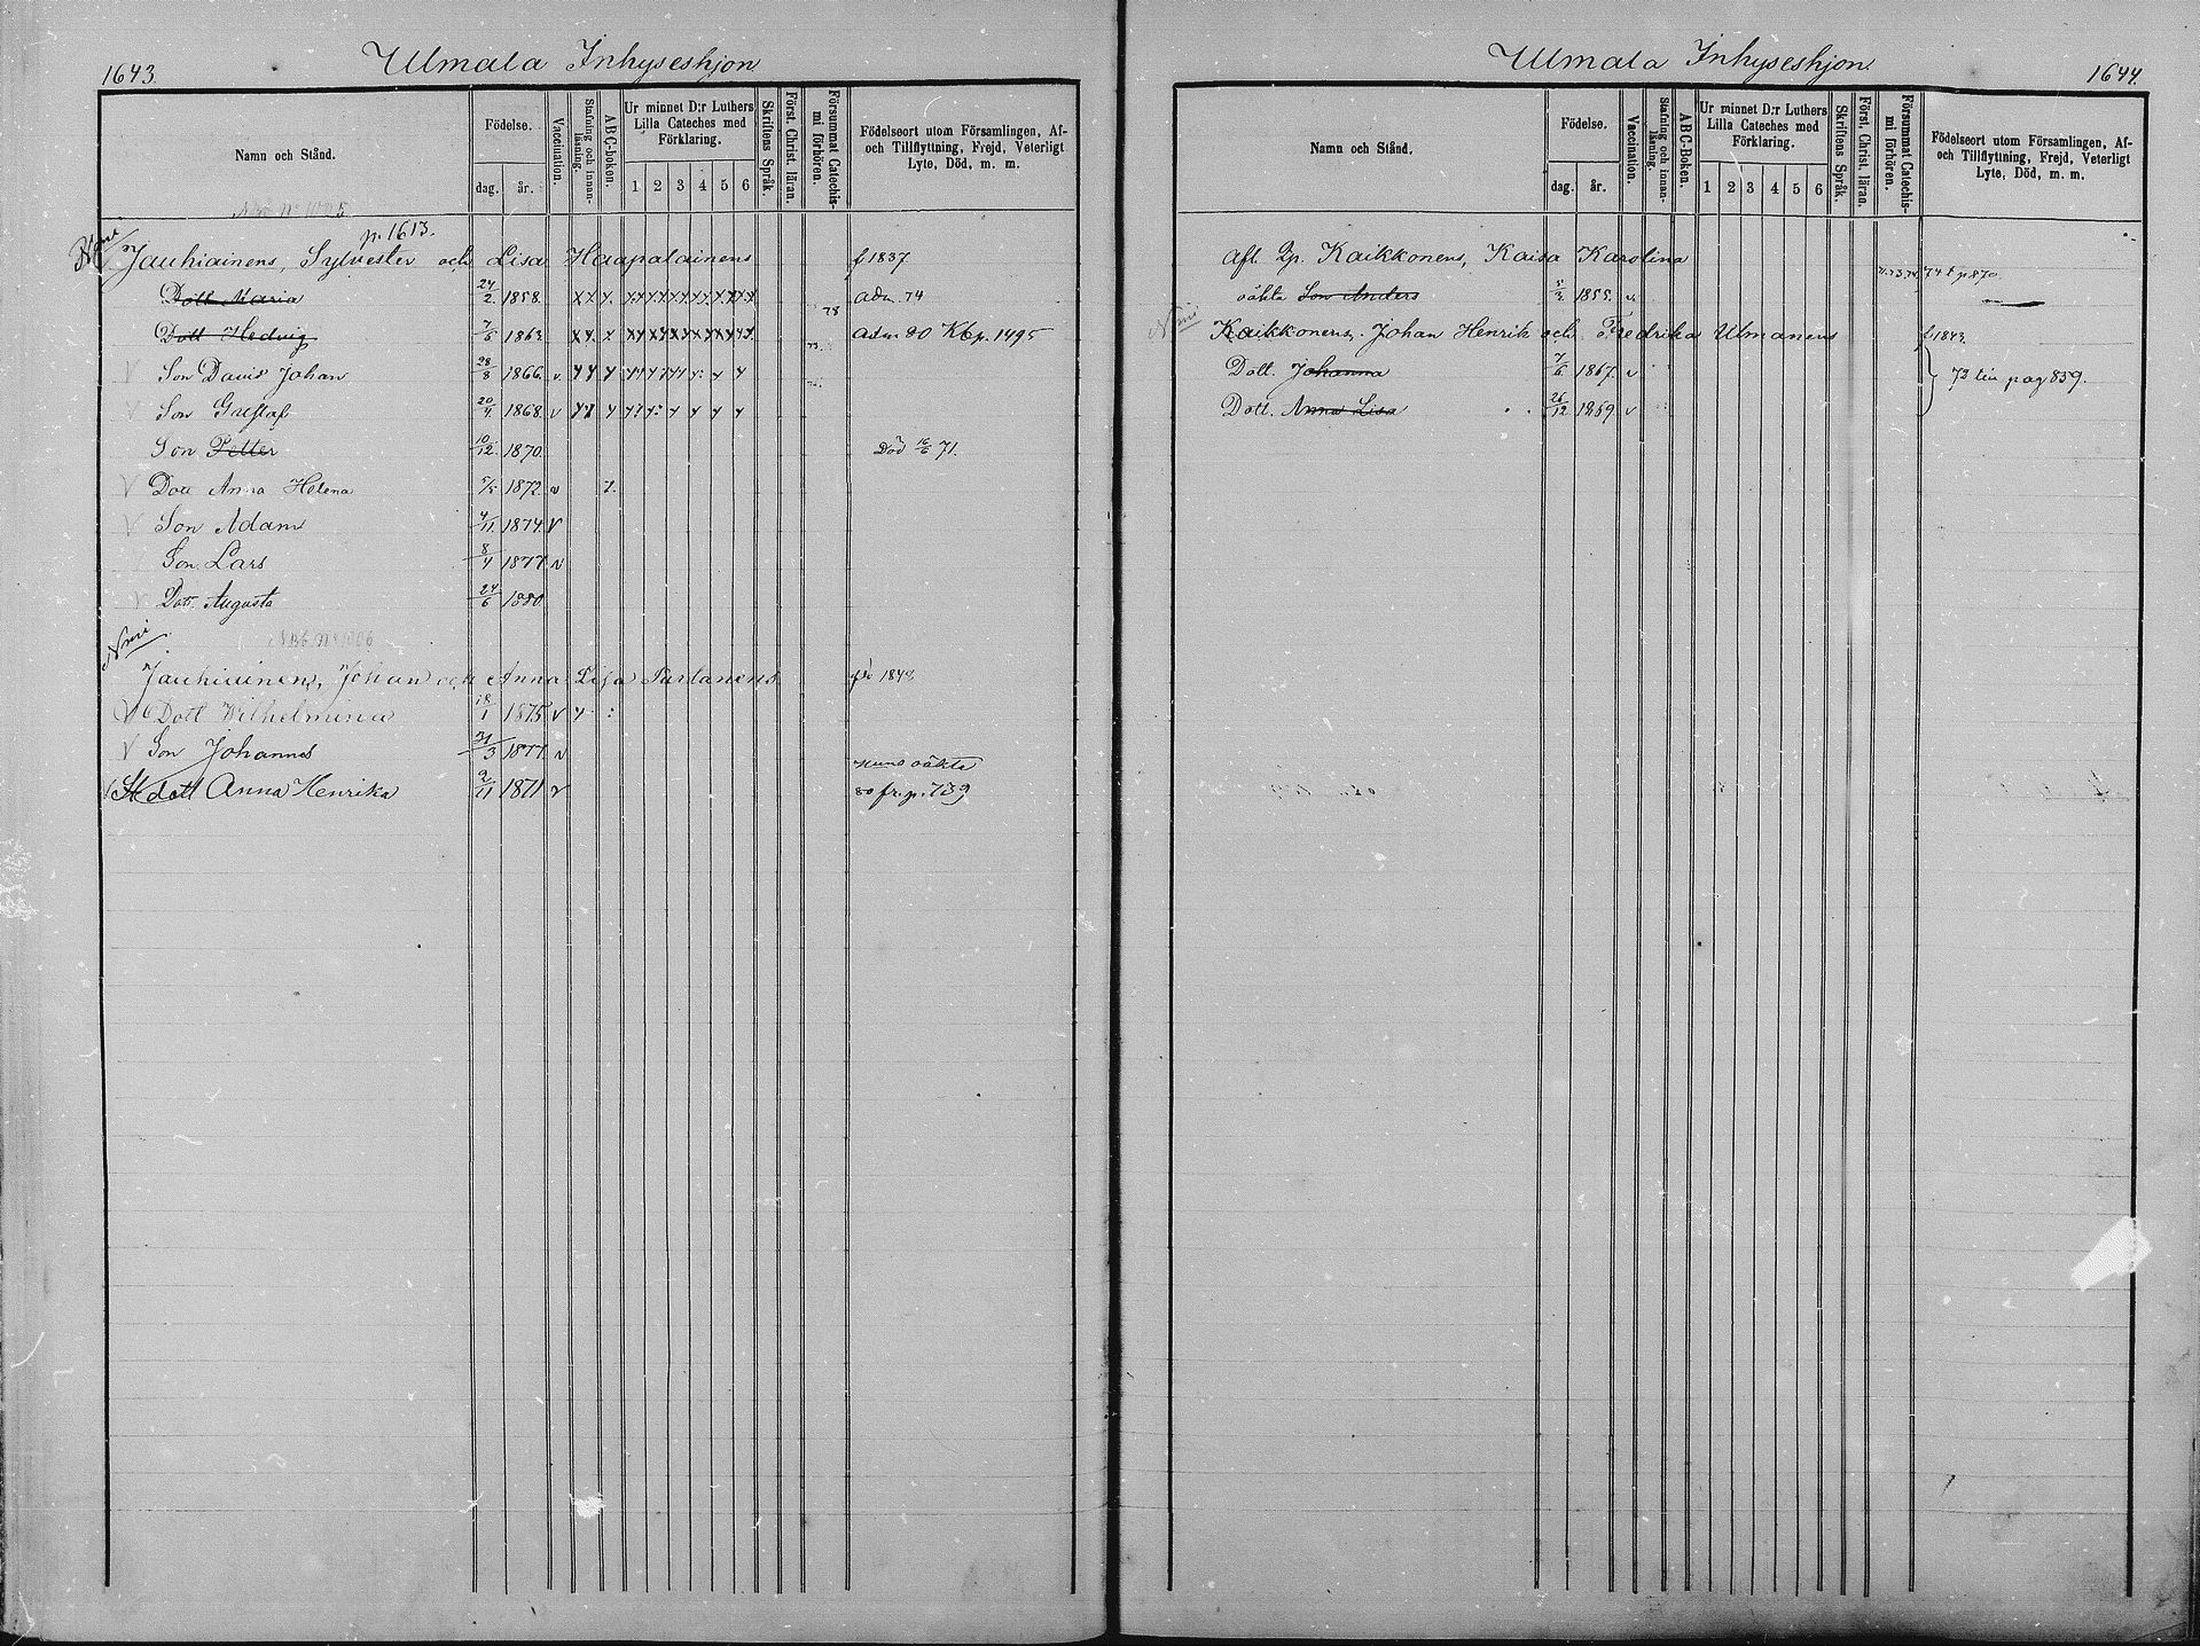 1643.
Ulmala Inhyseshjon
Namn och Stånd.
Födelse.
dag.
år.
Vaccination.
Stafning och innan-
läsning.
ABC-boken.
Ur minnet D:r Luthers
Lilla Cateches med
Förklaring.
1 2 3 4 5 6
Skriftens Språk.
Först. Christ. läran.
Försummat Catechis-
mi förhören.
Födelseort utom Församlingen, Af-
och Tillflyttning, Frejd, Veterligt
Lyte, Död, m. m.
p. 1613.
Jauhiainens, Sylvester och Lisa Haapalainens f 1837
Dott Maria 24/2. 1858. adm. 74
78
Dott Hedvig 7/6 1863 adm 80 Kb p. 1495
Son David Johan 28/8 1866. v.
Son Gustaf 20/4 1868. v
Son Petter 10/12. 1870. Död 16/6 71.
v Dott Anna Helena 5/5 1872 v
v Son Adam 4/11. 1874. v
Son Lars 8/4 1877 v
v Dott. Augusta 24/6 1880
Jauhiainens, Johan och Anna Lisa Partanens 1848
Dott Wilhelmina 18/1 1875 v
v Son Johannes 31/3 1877. v
hans oäkta
dott Anna Henrika 2/11 1871 v 80 fr. p. 739
1644.
Ulmala Inhyseshjon.
Namn och Stånd.
Födelse.
dag.
år.
Vaccination.
Stafning och innan-
läsning.
ABC-Boken.
Ur minnet D:r Luthers
Lilla Cateches med
Förklaring.
1 2 3 4 5 6
Skriftens Språk.
Först. Christ. läran.
Försummat Catechis-
mi förhören.
Födelseort utom Församlingen, Af-
och Tillflyttning, Frejd, Veterligt
Lyte, Död, m. m.
Afl. Kaikkonens, Kaisa Karolina
74 t p 870
oäkta Son Anders 5/3. 1855. v.
Kaikkonens, Johan Henrik och Fredrika Ulmanens f. 1843.
Dott. Johanna 7/6 1867. v
73 till pag 839.
Dott. Anna Lisa 26/12 1869. v